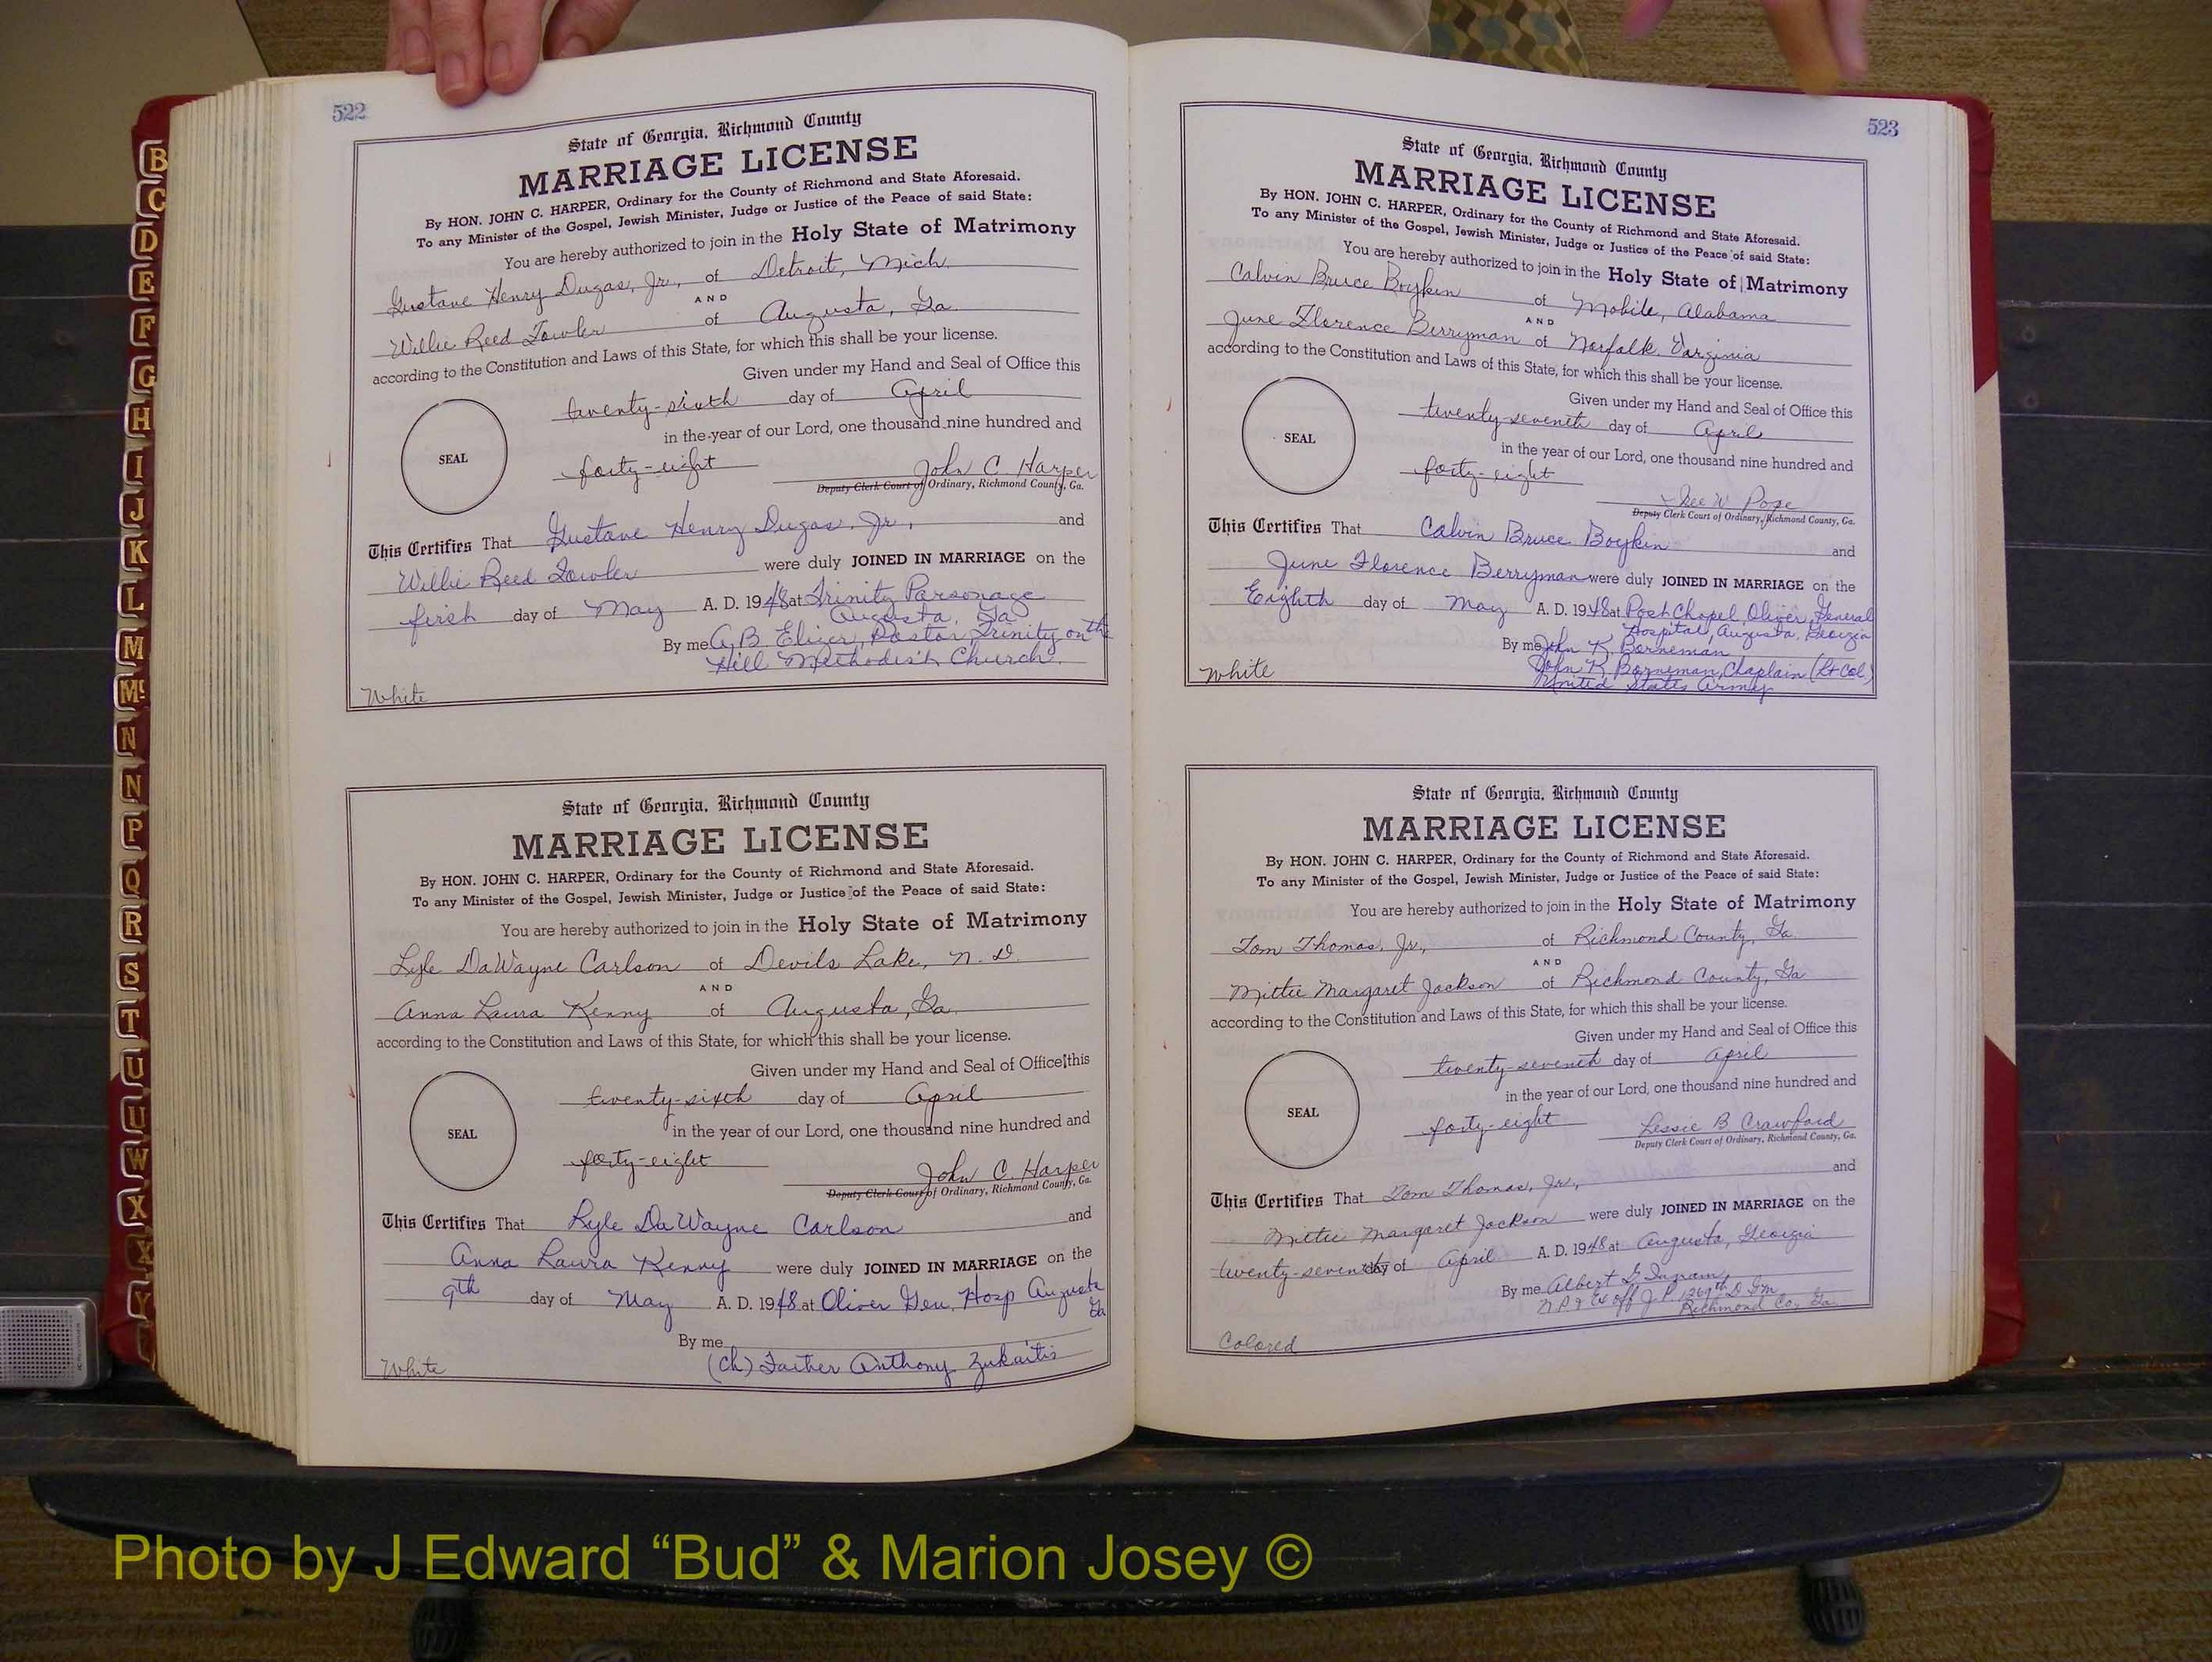 522
State of Georgia, Richmond County
MARRIAGE LICENSE
By HON. JOHN C. HARPER, Ordinary for the County of Richmond and State Aforesaid.
To any Minister of the Gospel, Jewish Minister, Judge or Justice of the Peace of said State:
You are hereby authorized to join in the Holy State of Matrimony
Gustave Henry Dugas, Jr., of Detroit, Mich.
AND
Willie Reed Fowler of Augusta, Ga.
according to the Constitution and Laws of this State, for which this shall be your license.
Given under my Hand and Seal of Office this
twenty-sixth day of April
in the year of our Lord, one thousand nine hundred and
SEAL
forty-eight John C. Harper
Deputy Clerk Court of Ordinary, Richmond County, Ga.
This Certifies That Gustave Henry Dugas, Jr., and
Willie Reed Fowler were duly JOINED IN MARRIAGE on the
first day of May A. D. 1948 at Trinity Parsonage
Augusta, Ga
By me Pastor Trinity on the
Hill Methodist Church.
White
State of Georgia, Richmond County
MARRIAGE LICENSE
By HON. JOHN C. HARPER, Ordinary for the County of Richmond and State Aforesaid.
To any Minister of the Gospel, Jewish Minister, Judge or Justice of the Peace of said State:
You are hereby authorized to join in the Holy State of Matrimony
Lyle DaWayne Carlson of Devils Lake, N. D.
AND
Anna Laura Kenny of Augusta, Ga.
according to the Constitution and Laws of this State, for which this shall be your license.
Given under my Hand and Seal of Office this
twenty-sixth day of April
in the year of our Lord, one thousand nine hundred and
SEAL
forty-eight John C. Harper
Deputy Clerk Court of Ordinary, Richmond County, Ga.
This Certifies That Lyle DaWayne Carlson and
Anna Laura Kenny were duly JOINED IN MARRIAGE on the
9th day of May A. D. 1948 at Oliver Gen. Hosp Augusta
Ga
By me
(Ch) Father Anthony Zukaitis
White
523
State of Georgia, Richmond County
MARRIAGE LICENSE
By HON. JOHN C. HARPER, Ordinary for the County of Richmond and State Aforesaid.
To any Minister of the Gospel, Jewish Minister, Judge or Justice of the Peace of said State:
You are hereby authorized to join in the Holy State of Matrimony
Calvin Bruce Boykin of Mobile, Alabama
AND
June Florence Berryman of Norfolk, Varginia
according to the Constitution and Laws of this State, for which this shall be your license.
Given under my Hand and Seal of Office this
twenty-seventh day of April
in the year of our Lord, one thousand nine hundred and
SEAL
forty-eight
W. Pope
Deputy Clerk Court of Ordinary, Richmond County, Ga.
This Certifies That Calvin Bruce Boykin and
June Florence Berryman were duly JOINED IN MARRIAGE on the
Eighth day of May A. D. 1948 at Post Chapel, Oliver General
Hospital, Augusta, Georgia
By me John K. Borneman
John K. Borneman, Chaplain (Lt Col)
United States Army
White
State of Georgia, Richmond County
MARRIAGE LICENSE
By HON. JOHN C. HARPER, Ordinary for the County of Richmond and State Aforesaid.
To any Minister of the Gospel, Jewish Minister, Judge or Justice of the Peace of said State:
You are hereby authorized to join in the Holy State of Matrimony
Tom Thomas, Jr., of Richmond County, Ga.
AND
Mittie Margaret Jackson of Richmond County, Ga
according to the Constitution and Laws of this State, for which this shall be your license.
Given under my Hand and Seal of Office this
twenty-seventh day of April
in the year of our Lord, one thousand nine hundred and
SEAL
forty-eight Lessie B. Crawford
Deputy Clerk Court of Ordinary, Richmond County, Ga.
and
This Certifies That Tom Thomas, Jr.,
Mittie Margaret Jackson were duly JOINED IN MARRIAGE on the
twenty-seventh day of April A. D. 1948 at Augusta, Georgia
By me Albert G. Ingram
N.P. & Ex off J.P. 1269th D. G.M.
Richmond Co, Ga.
Colored
B
C
D
E
F
G
H
I
J
K
L
M
Mc
N
N
P
Q
R
S
T
U
U
W
X
X
Y
Photo by J Edward “Bud” & Marion Josey ©